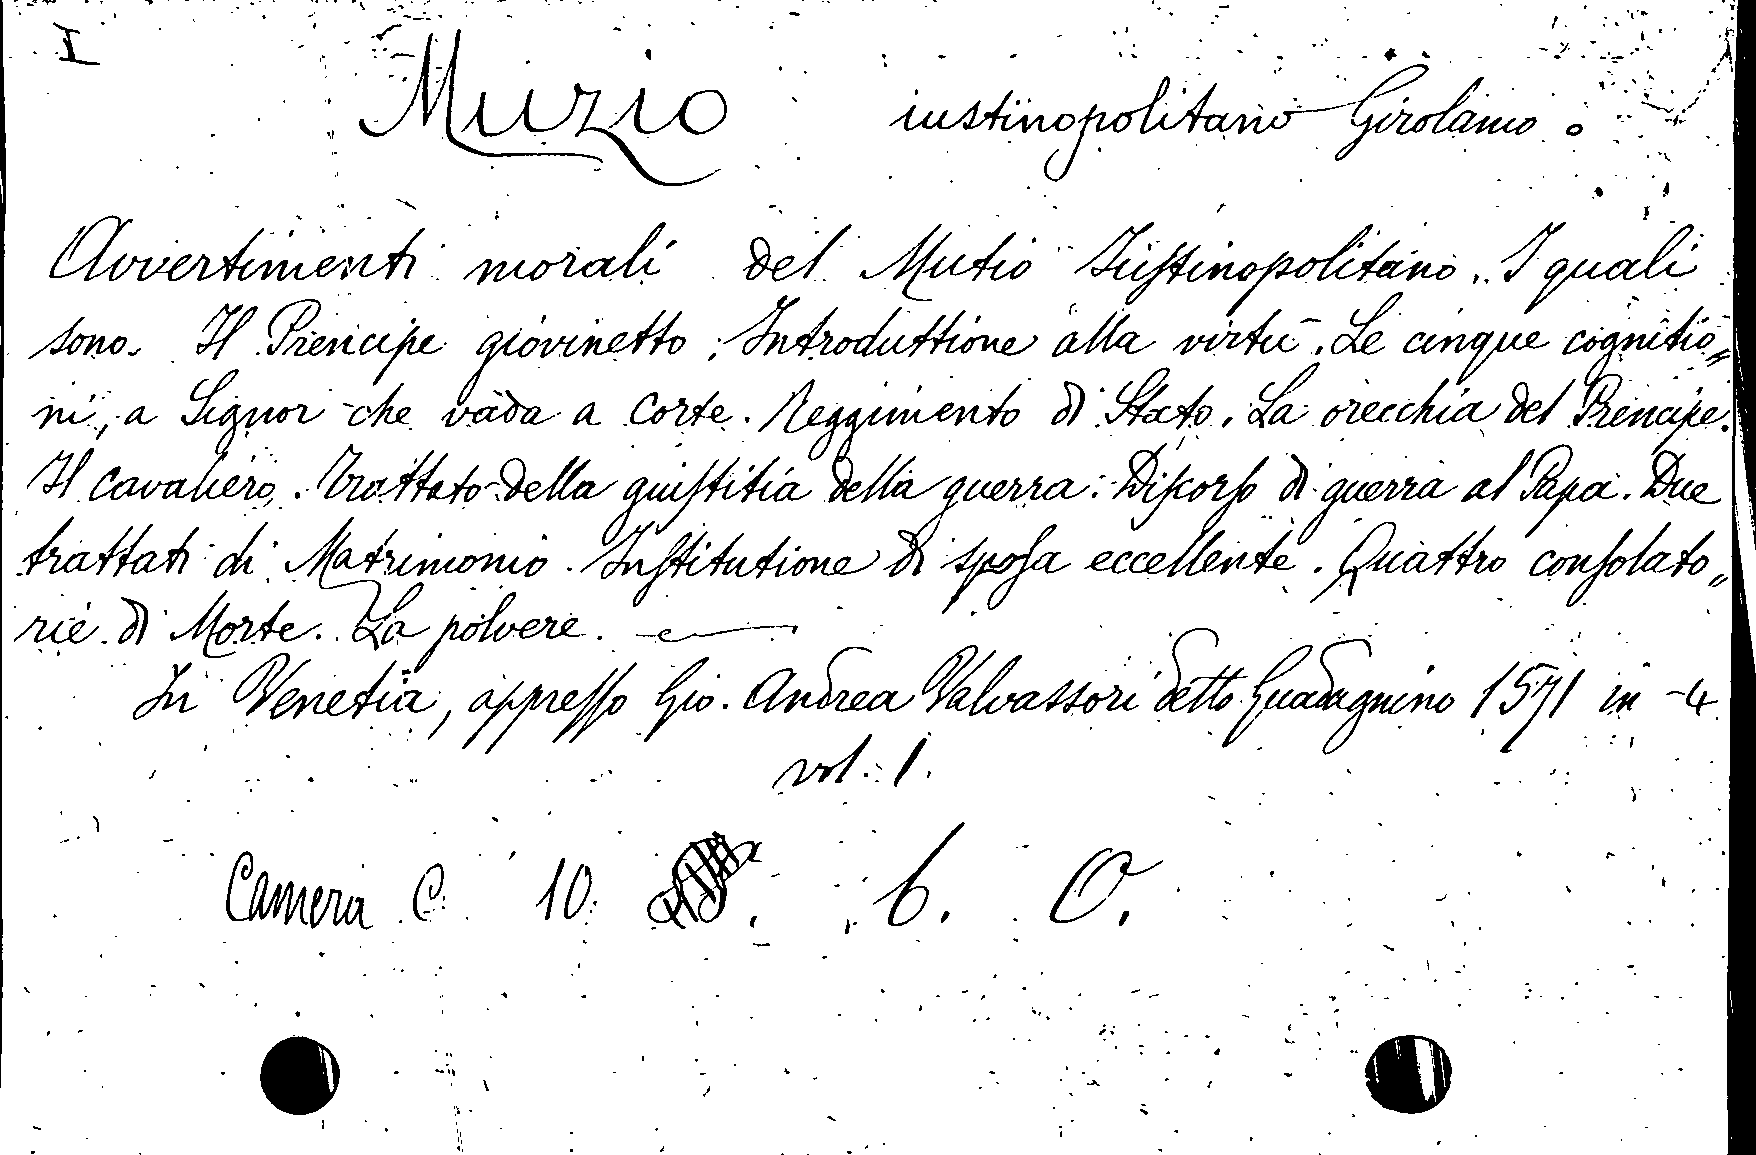 I
Muzio iustinopolitano Girolamo.
Avvertimenti morali del Mutio Iustinopolitano. I quali
sono. Il Prencipe giovinetto. Introduttione alla virtù. Le cinque cognitio„
ni, a Signor che vada a corte. Reggimento di Stato. La orecchia del Prencipe.
Il cavaliero. Trattato della giustitia della guerra. Discorso di guerra al Papa. Due
trattati di Matrimonio. Institutione di sposa eccellente. Quattro consolato„
rie di Morte. La polvere.
In Venetia, appresso Gio. Andrea Valvassori detto Guadagnino 1571 in-4
vol. 1.
Camera C. 10. 6. O.